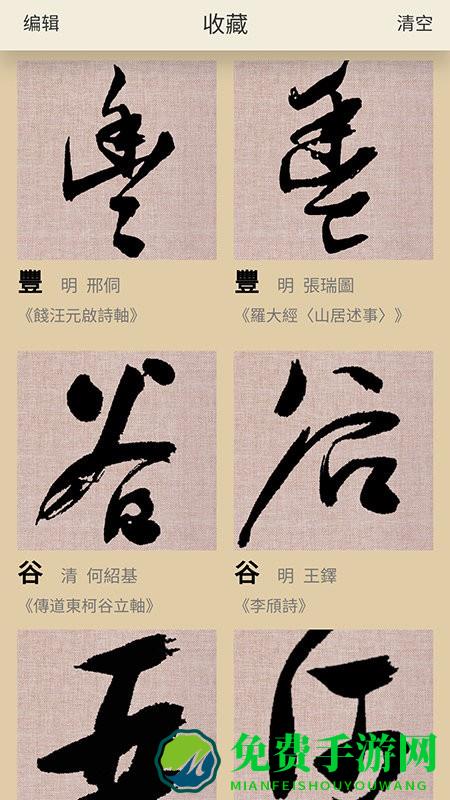 编辑 收藏 清空
豐 豐
豐 明 邢侗
《餞汪元啟詩軸》
豐 明 張瑞圖
《羅大經〈山居述事〉》
谷 谷
谷 清 何紹基
《傳道東柯谷立軸》
谷 明 王鐸
《李頎詩》
五
免费手游网
MIANFEISHOUYOUWANG